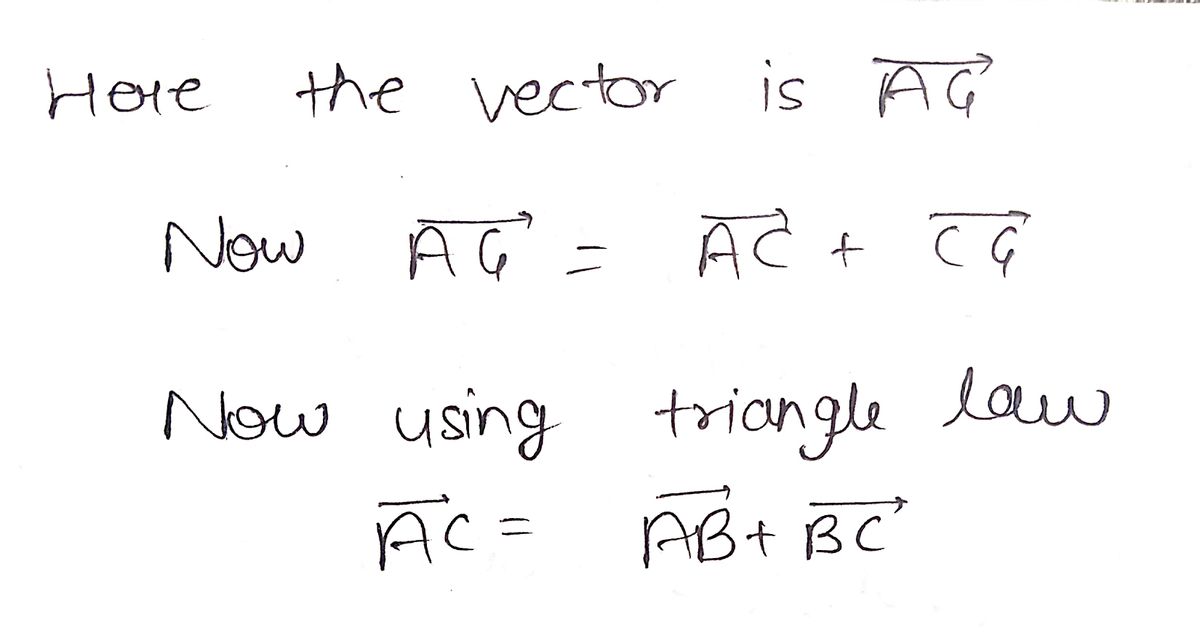 Here the vector is $\overrightarrow{AG}$
Now $\overrightarrow{AG} = \overrightarrow{AC} + \overrightarrow{CG}$
Now using triangle law
$\overrightarrow{AC} = \overrightarrow{AB} + \overrightarrow{BC}$